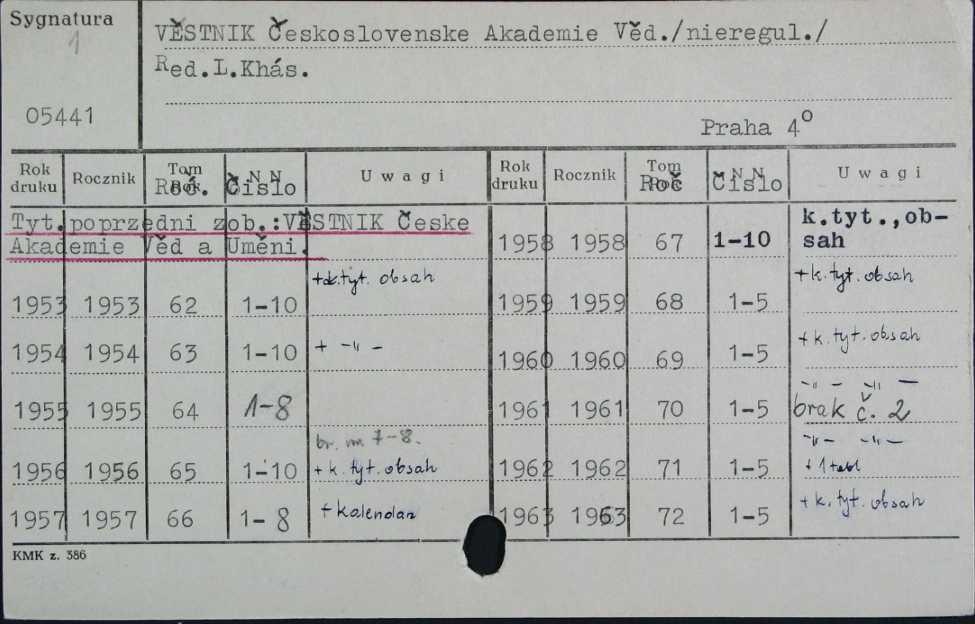 Sygnatura
1
05441
VĚSTNIK Československe Akademie Věd./nieregul./
Red.L.Khás.
Praha 4°
Rok druku Rocznik Tom Rok Roč. N N Číslo Uwagi
Rok druku Rocznik Tom Rok Roč N N Číslo Uwagi
Tyt.poprzedni zob.:VĚSTNIK Česke
Akademie Věd a Uměni.
1953 1953 62 1-10 +k.tyt. obsah
1954 1954 63 1-10 + -"-
1955 1955 64 1-8
1956 1956 65 1-10 br. nr 7-8.
+ k. tyt. obsah
1957 1957 66 1-8 + kalendar
1958 1958 67 1-10 k.tyt.,ob-
sah
1959 1959 68 1-5 + k. tyt. obsah
1960 1960 69 1-5 + k. tyt. obsah
1961 1961 70 1-5 -"- -"-
brak č. 2
1962 1962 71 1-5 -"- -"-
+ 1 tabl
1963 1963 72 1-5 + k. tyt. obsah
KMK z. 386